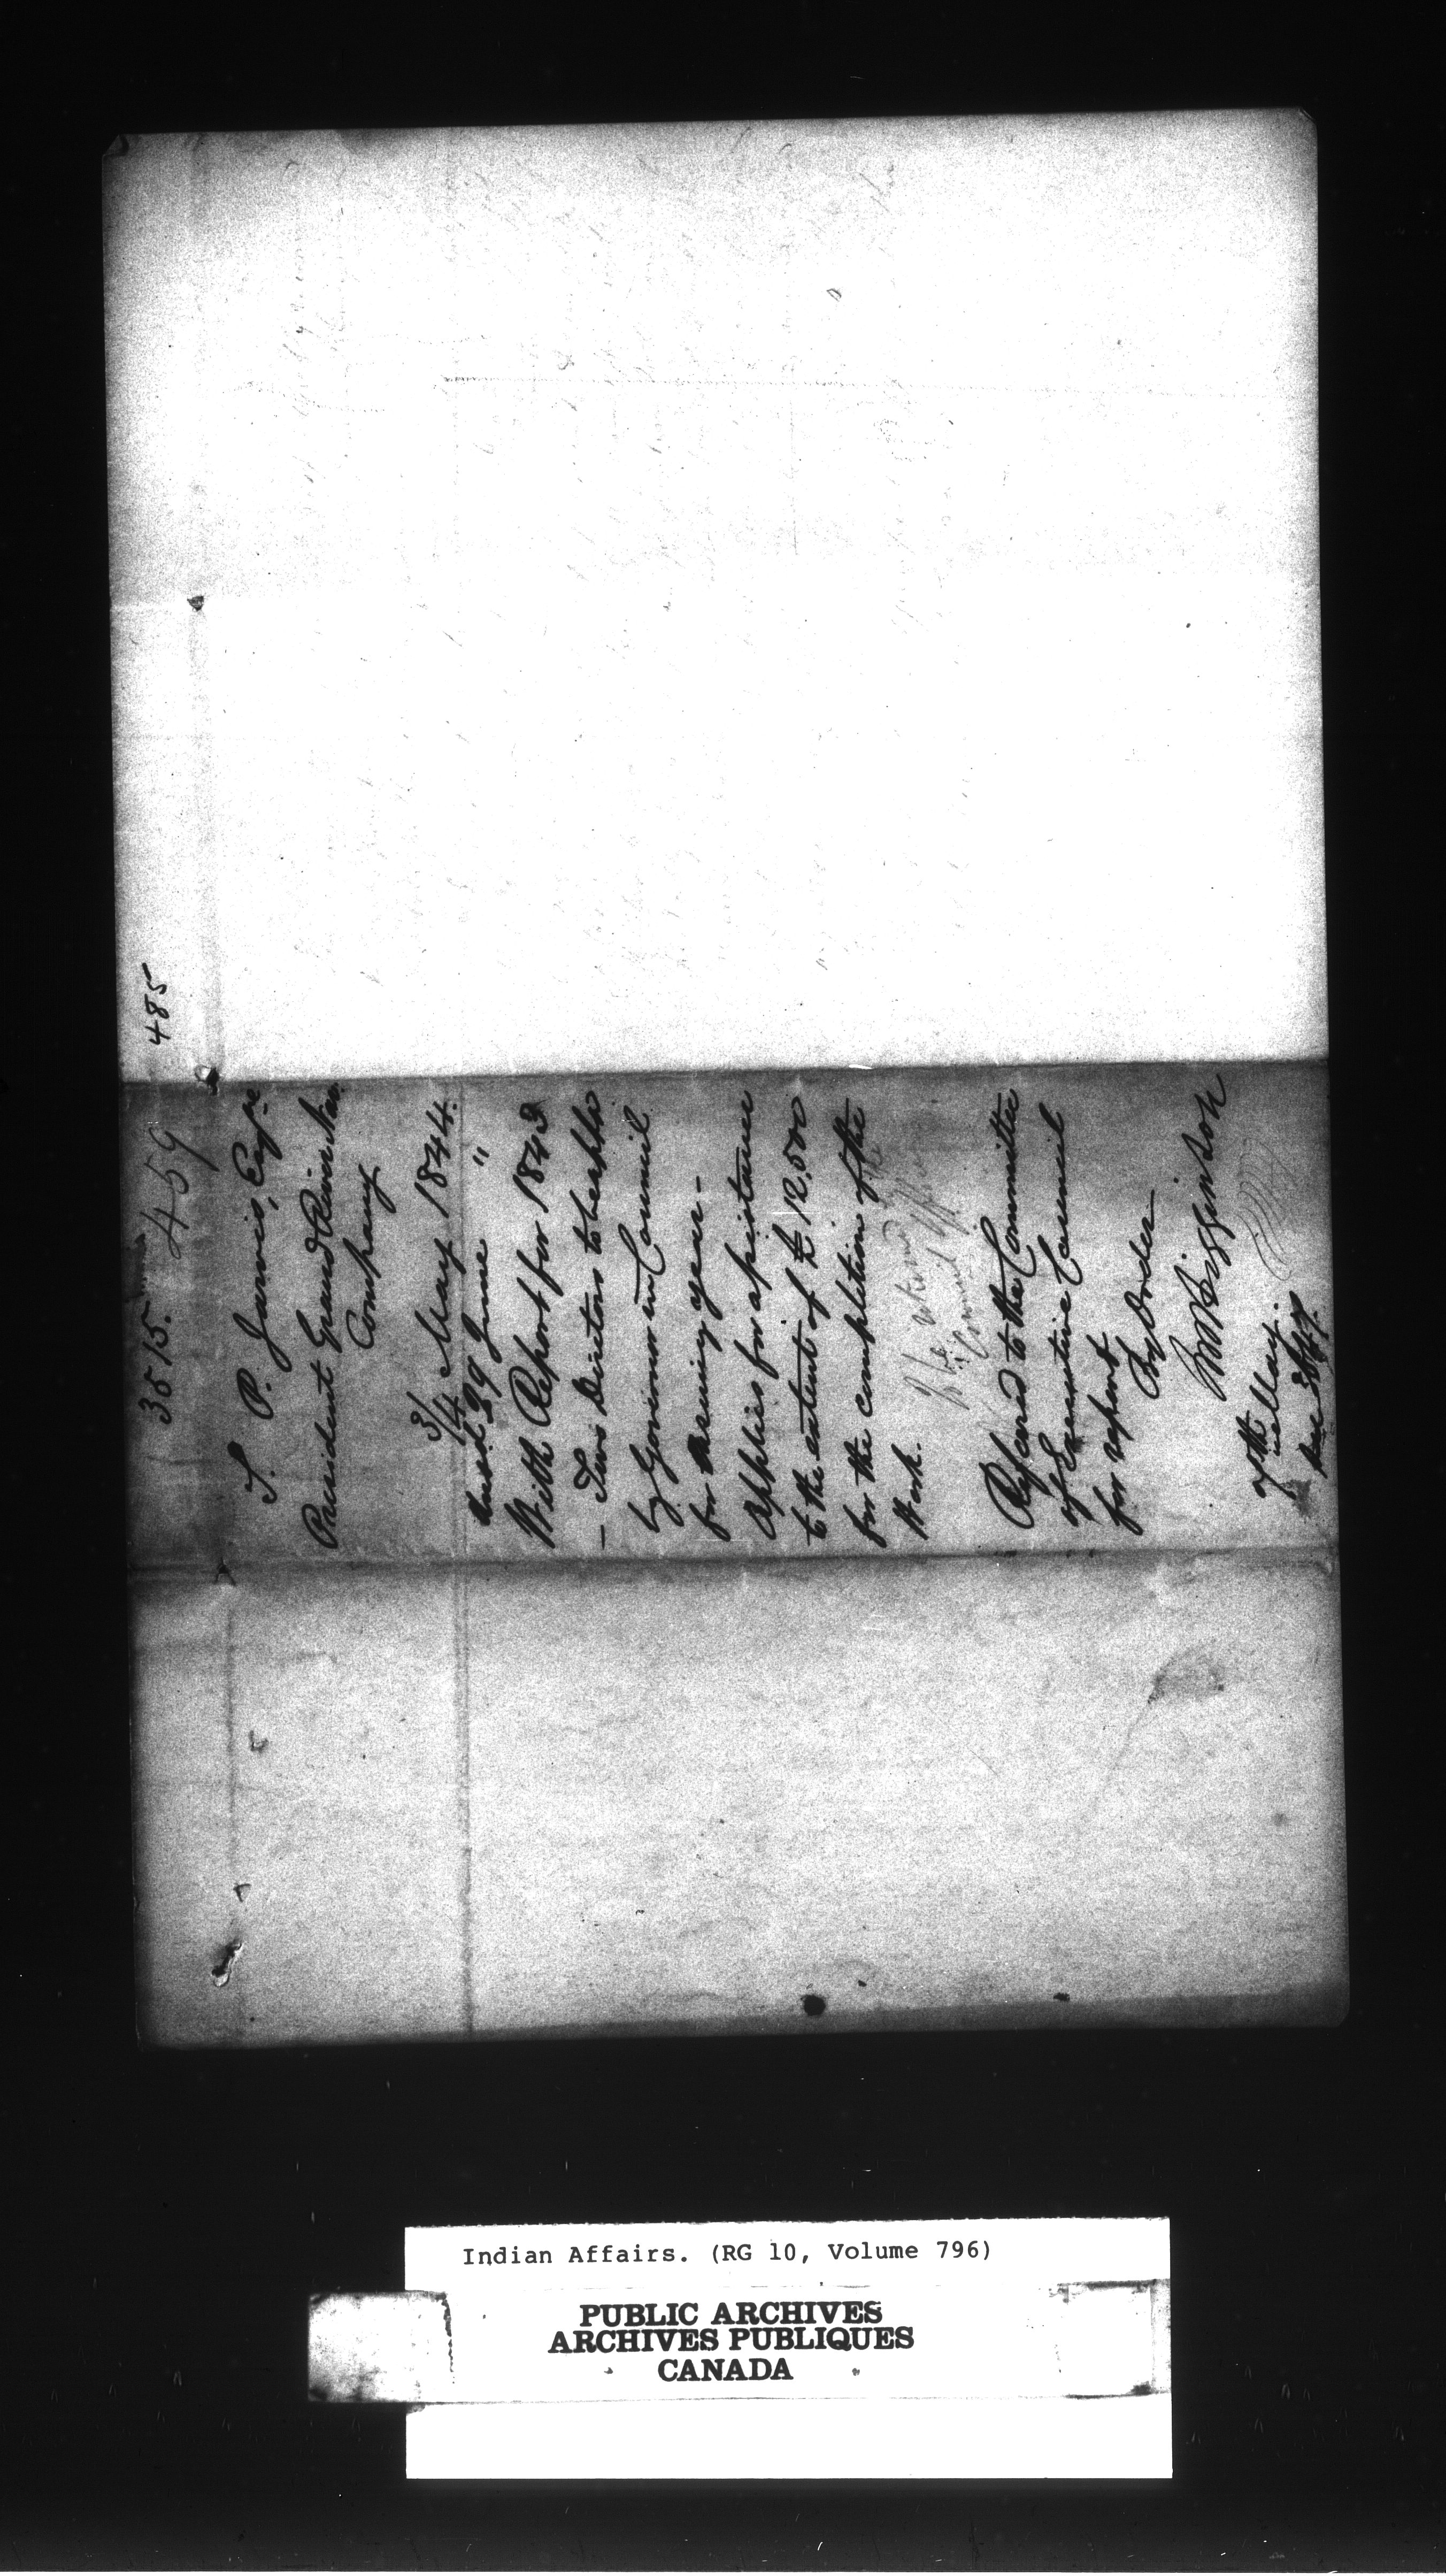 485
3515. 459
S. P. Jarvis, Esqre
President Grand River Nav.
Company
3/4 May 1844.
29 June "
With Report for 1843
– Two Directors to be app
by Governor in Council
for ensuing year –
Applies for assistance
to the extent of £12,500
for the completion of the
Work.
Referred to the Committee
of Executive Council
for report
By Order
Higginson
7th
See
Indian Affairs. (RG 10, Volume 796)
PUBLIC ARCHIVES
ARCHIVES PUBLIQUES
CANADA